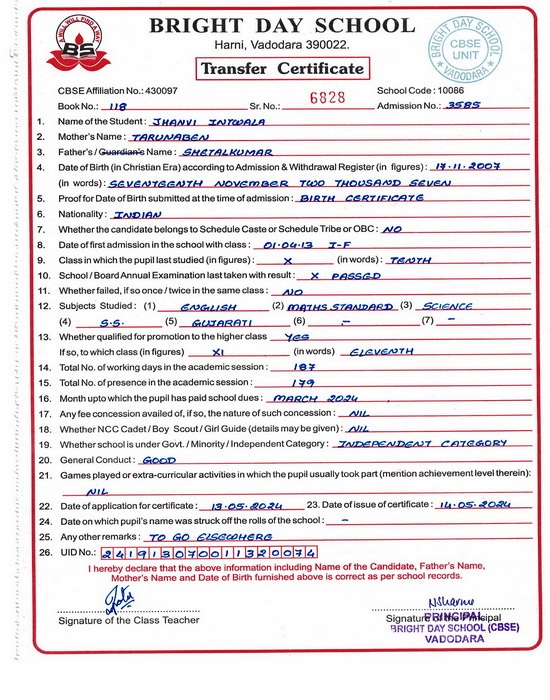 A WILL WILL FIND A WAY
BS
BRIGHT DAY SCHOOL
Harni, Vadodara 390022.
BRIGHT DAY SCHOOL
CBSE
UNIT
VADODARA
Transfer Certificate
CBSE Affiliation No.: 430097 School Code : 10086
Book No.: 118 Sr. No.: 6828 Admission No.: 3585
1. Name of the Student : JHANVI INTWALA
2. Mother's Name : TARUNABEN
3. Father's / Guardian's Name : SHETALKUMAR
4. Date of Birth (in Christian Era) according to Admission & Withdrawal Register (in figures) : 17-11-2007
(in words) : SEVENTEENTH NOVEMBER TWO THOUSAND SEVEN
5. Proof for Date of Birth submitted at the time of admission : BIRTH CERTIFICATE
6. Nationality : INDIAN
7. Whether the candidate belongs to Schedule Caste or Schedule Tribe or OBC : NO
8. Date of first admission in the school with class : 01-04-13 I-F
9. Class in which the pupil last studied (in figures) : X (in words) : TENTH
10. School / Board Annual Examination last taken with result : X PASSED
11. Whether failed, if so once / twice in the same class : NO
12. Subjects Studied : (1) ENGLISH (2) MATHS STANDARD (3) SCIENCE
(4) S.S. (5) GUJARATI (6) - (7) -
13. Whether qualified for promotion to the higher class YES
If so, to which class (in figures) XI (in words) ELEVENTH
14. Total No. of working days in the academic session : 187
15. Total No. of presence in the academic session : 179
16. Month upto which the pupil has paid school dues : MARCH 2024
17. Any fee concession availed of, if so, the nature of such concession : NIL
18. Whether NCC Cadet / Boy Scout / Girl Guide (details may be given) : NIL
19. Whether school is under Govt. / Minority / Independent Category : INDEPENDENT CATEGORY
20. General Conduct : GOOD
21. Games played or extra-curricular activities in which the pupil usually took part (mention achievement level therein):
NIL
22. Date of application for certificate : 13-05-2024 23. Date of issue of certificate : 14-05-2024
24. Date on which pupil's name was struck off the rolls of the school : -
25. Any other remarks : TO GO ELSEWHERE
26. UID No.: 241913070011320074
I hereby declare that the above information including Name of the Candidate, Father's Name,
Mother's Name and Date of Birth furnished above is correct as per school records.
NSharma
Signature of the Class Teacher Signature of the Principal
PRINCIPAL
BRIGHT DAY SCHOOL (CBSE)
VADODARA